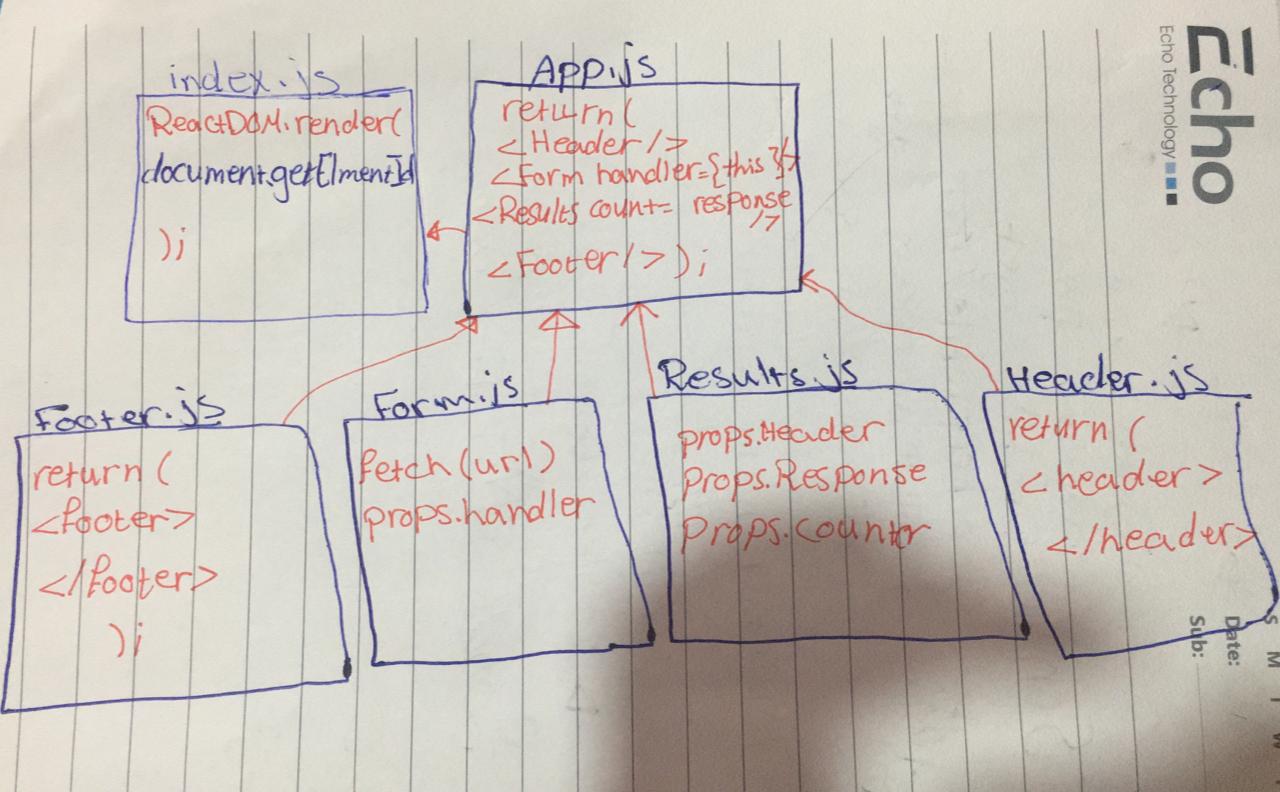 Echo
Echo Technology
index.js
ReactDOM.render(
document.getElmentId
);
App.js
return(
<Header/>
<Form handler={this}/>
<Results count= response
/>
<Footer/>);
Footer.js
return(
<footer>
</footer>
);
Form.js
fetch(url)
props.handler
Results.js
props.Header
Props.Response
Props.counter
Header.js
return(
<header>
</header>
Date:
Sub:
S M T W